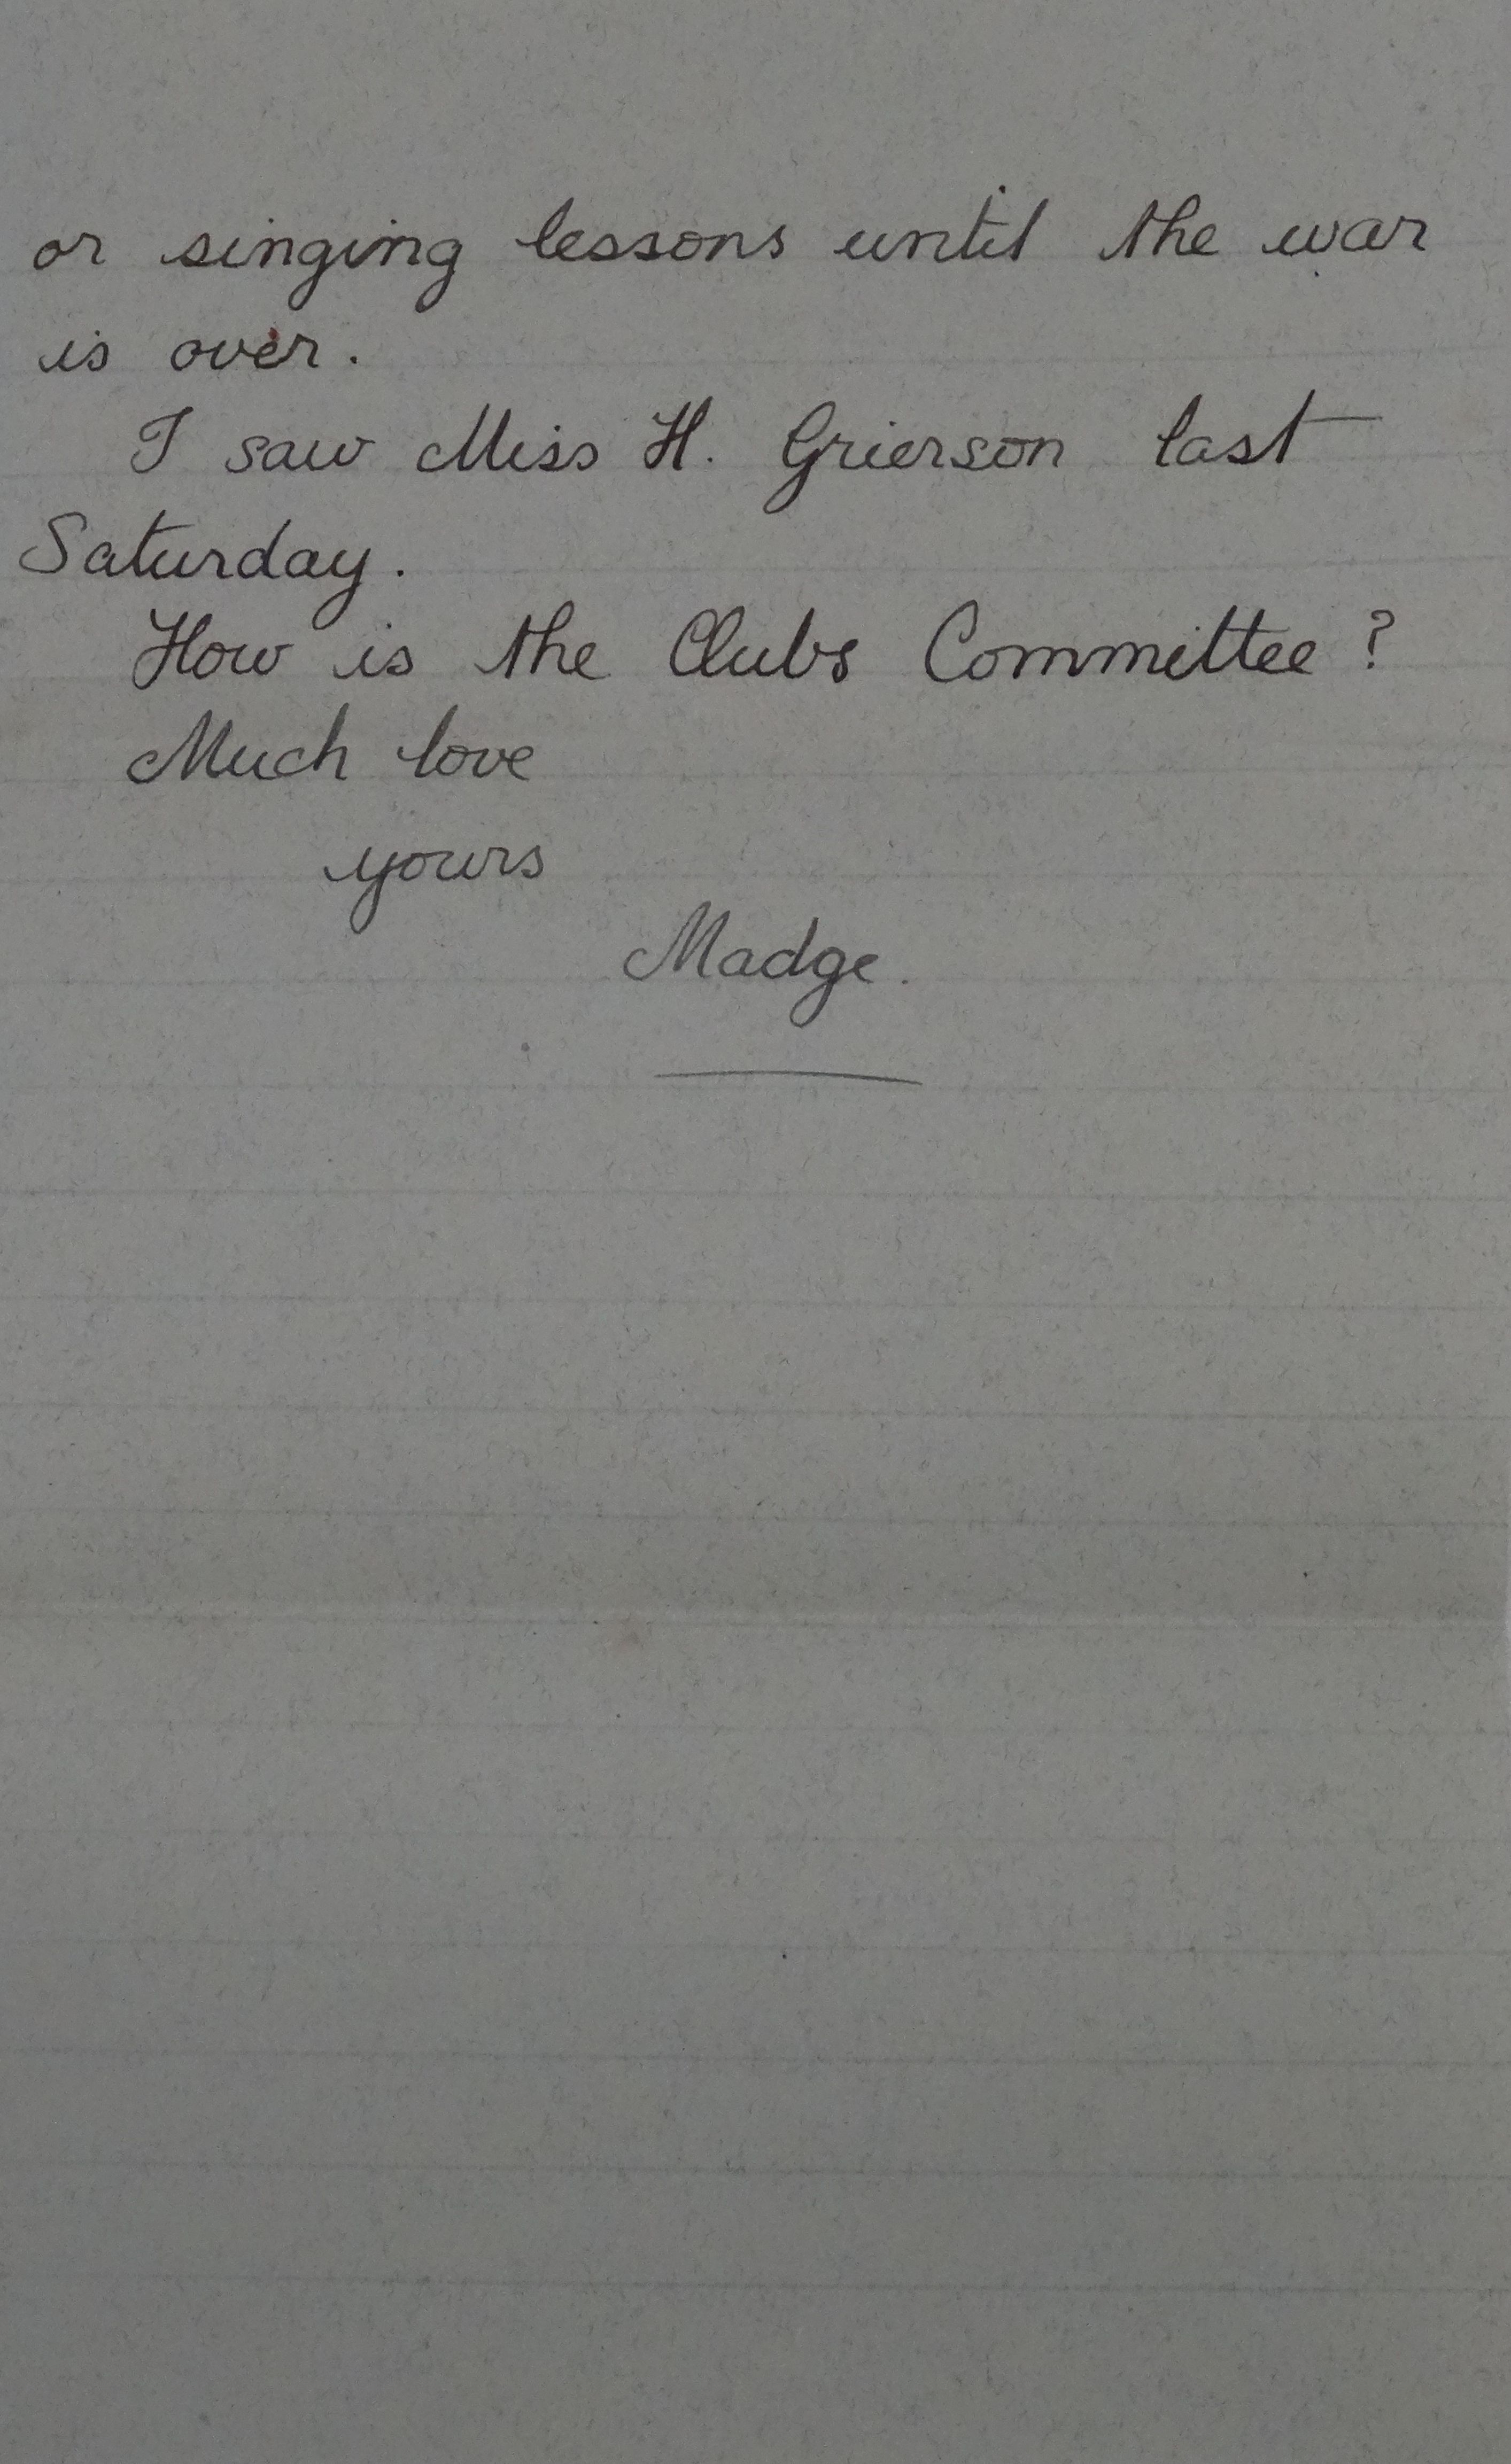 or singing lessons until the war
is over.
I saw Miss H. Grierson last
Saturday.
How is the Clubs Committee?
Much love
yours
Madge.